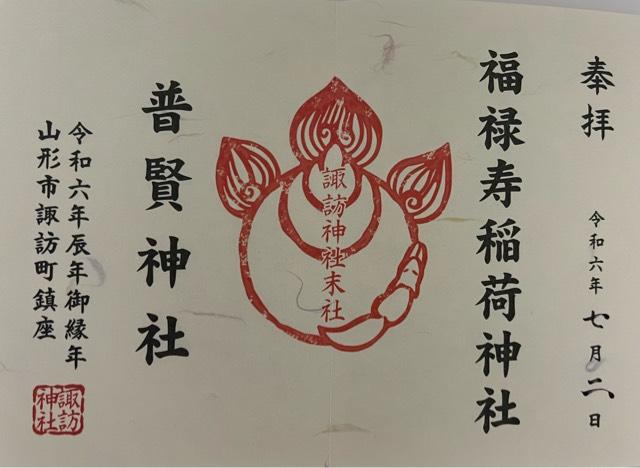 奉拝
令和六年七月二日
福禄寿稲荷神社
諏訪神社末社
普賢神社
令和六年辰年御縁年
山形市諏訪町鎮座
諏訪
神社